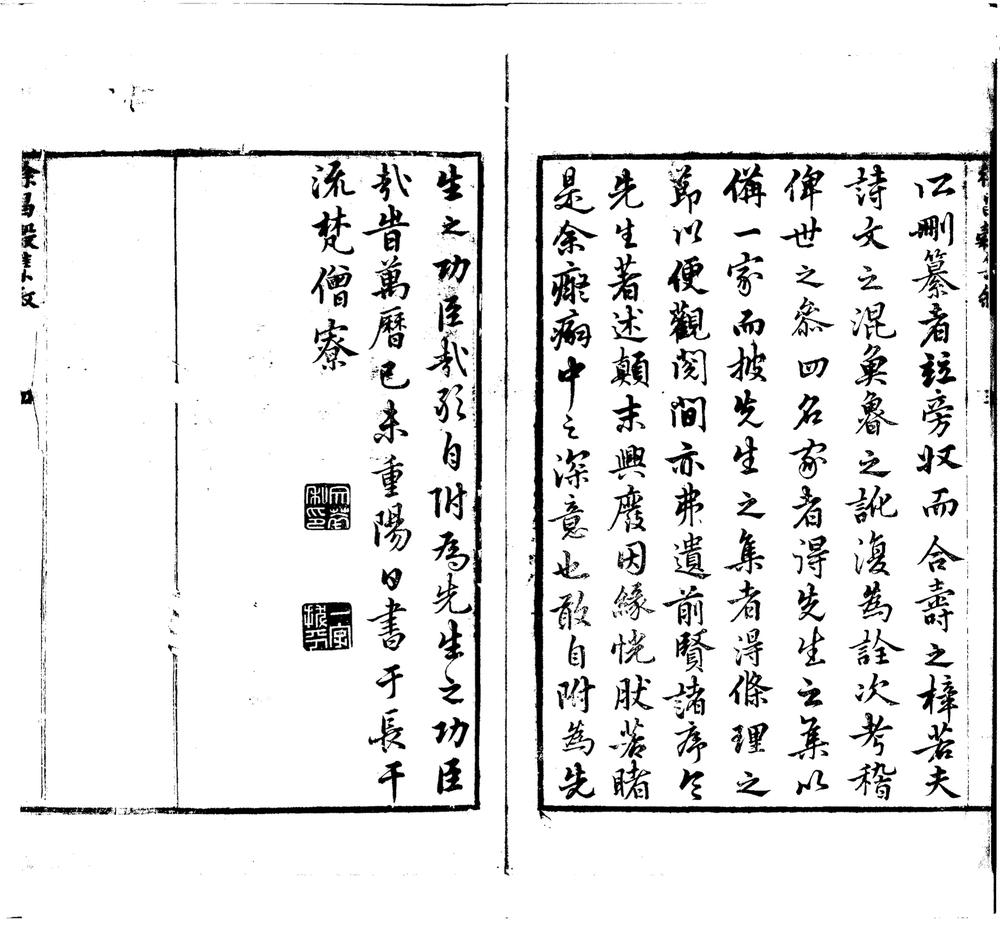 以刪纂者竝旁収而合壽之梓若夫
詩文之混奐魯之訛復為詮次考稽
俾世之叅四名家者得先生之集以
備一家而披先生之集者得條理之
節以便觀閱間亦弗遺前賢諸序令
先生著述顛末興廢因緣恍肰若睹
是余癡痴中之深意也敢自附為先
生之功臣㢤敢自附為先生之功臣
㢤旹萬曆己未重陽日書于長干
流梵僧寮
徐昌穀集敘
四
三